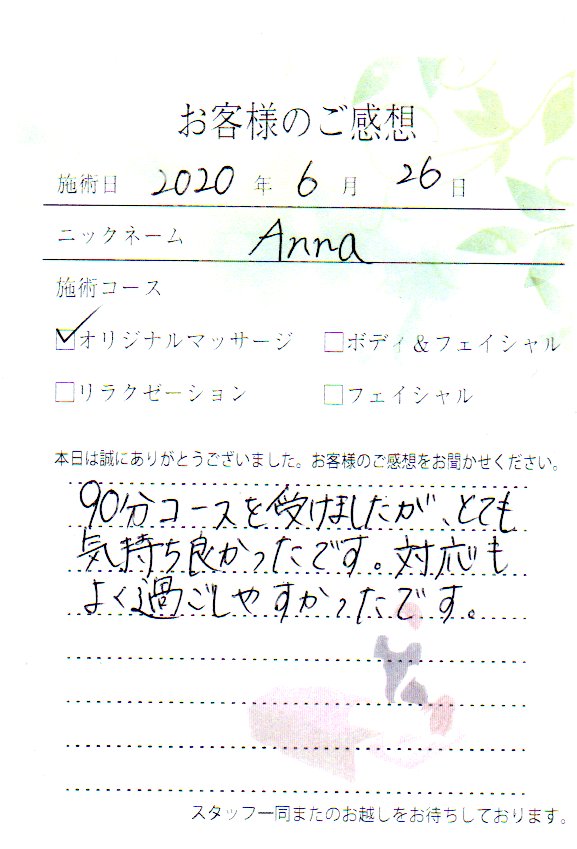 お客様のご感想
施術日 2020 年 6 月 26 日
ニックネーム Anna
施術コース
☑オリジナルマッサージ □ボディ&フェイシャル
□リラクゼーション □フェイシャル
本日は誠にありがとうございました。お客様のご感想をお聞かせください。
90分コースを受けましたが、とても
気持ち良かったです。対応も
よく過ごしやすかったです。
スタッフ一同またのお越しをお待ちしております。